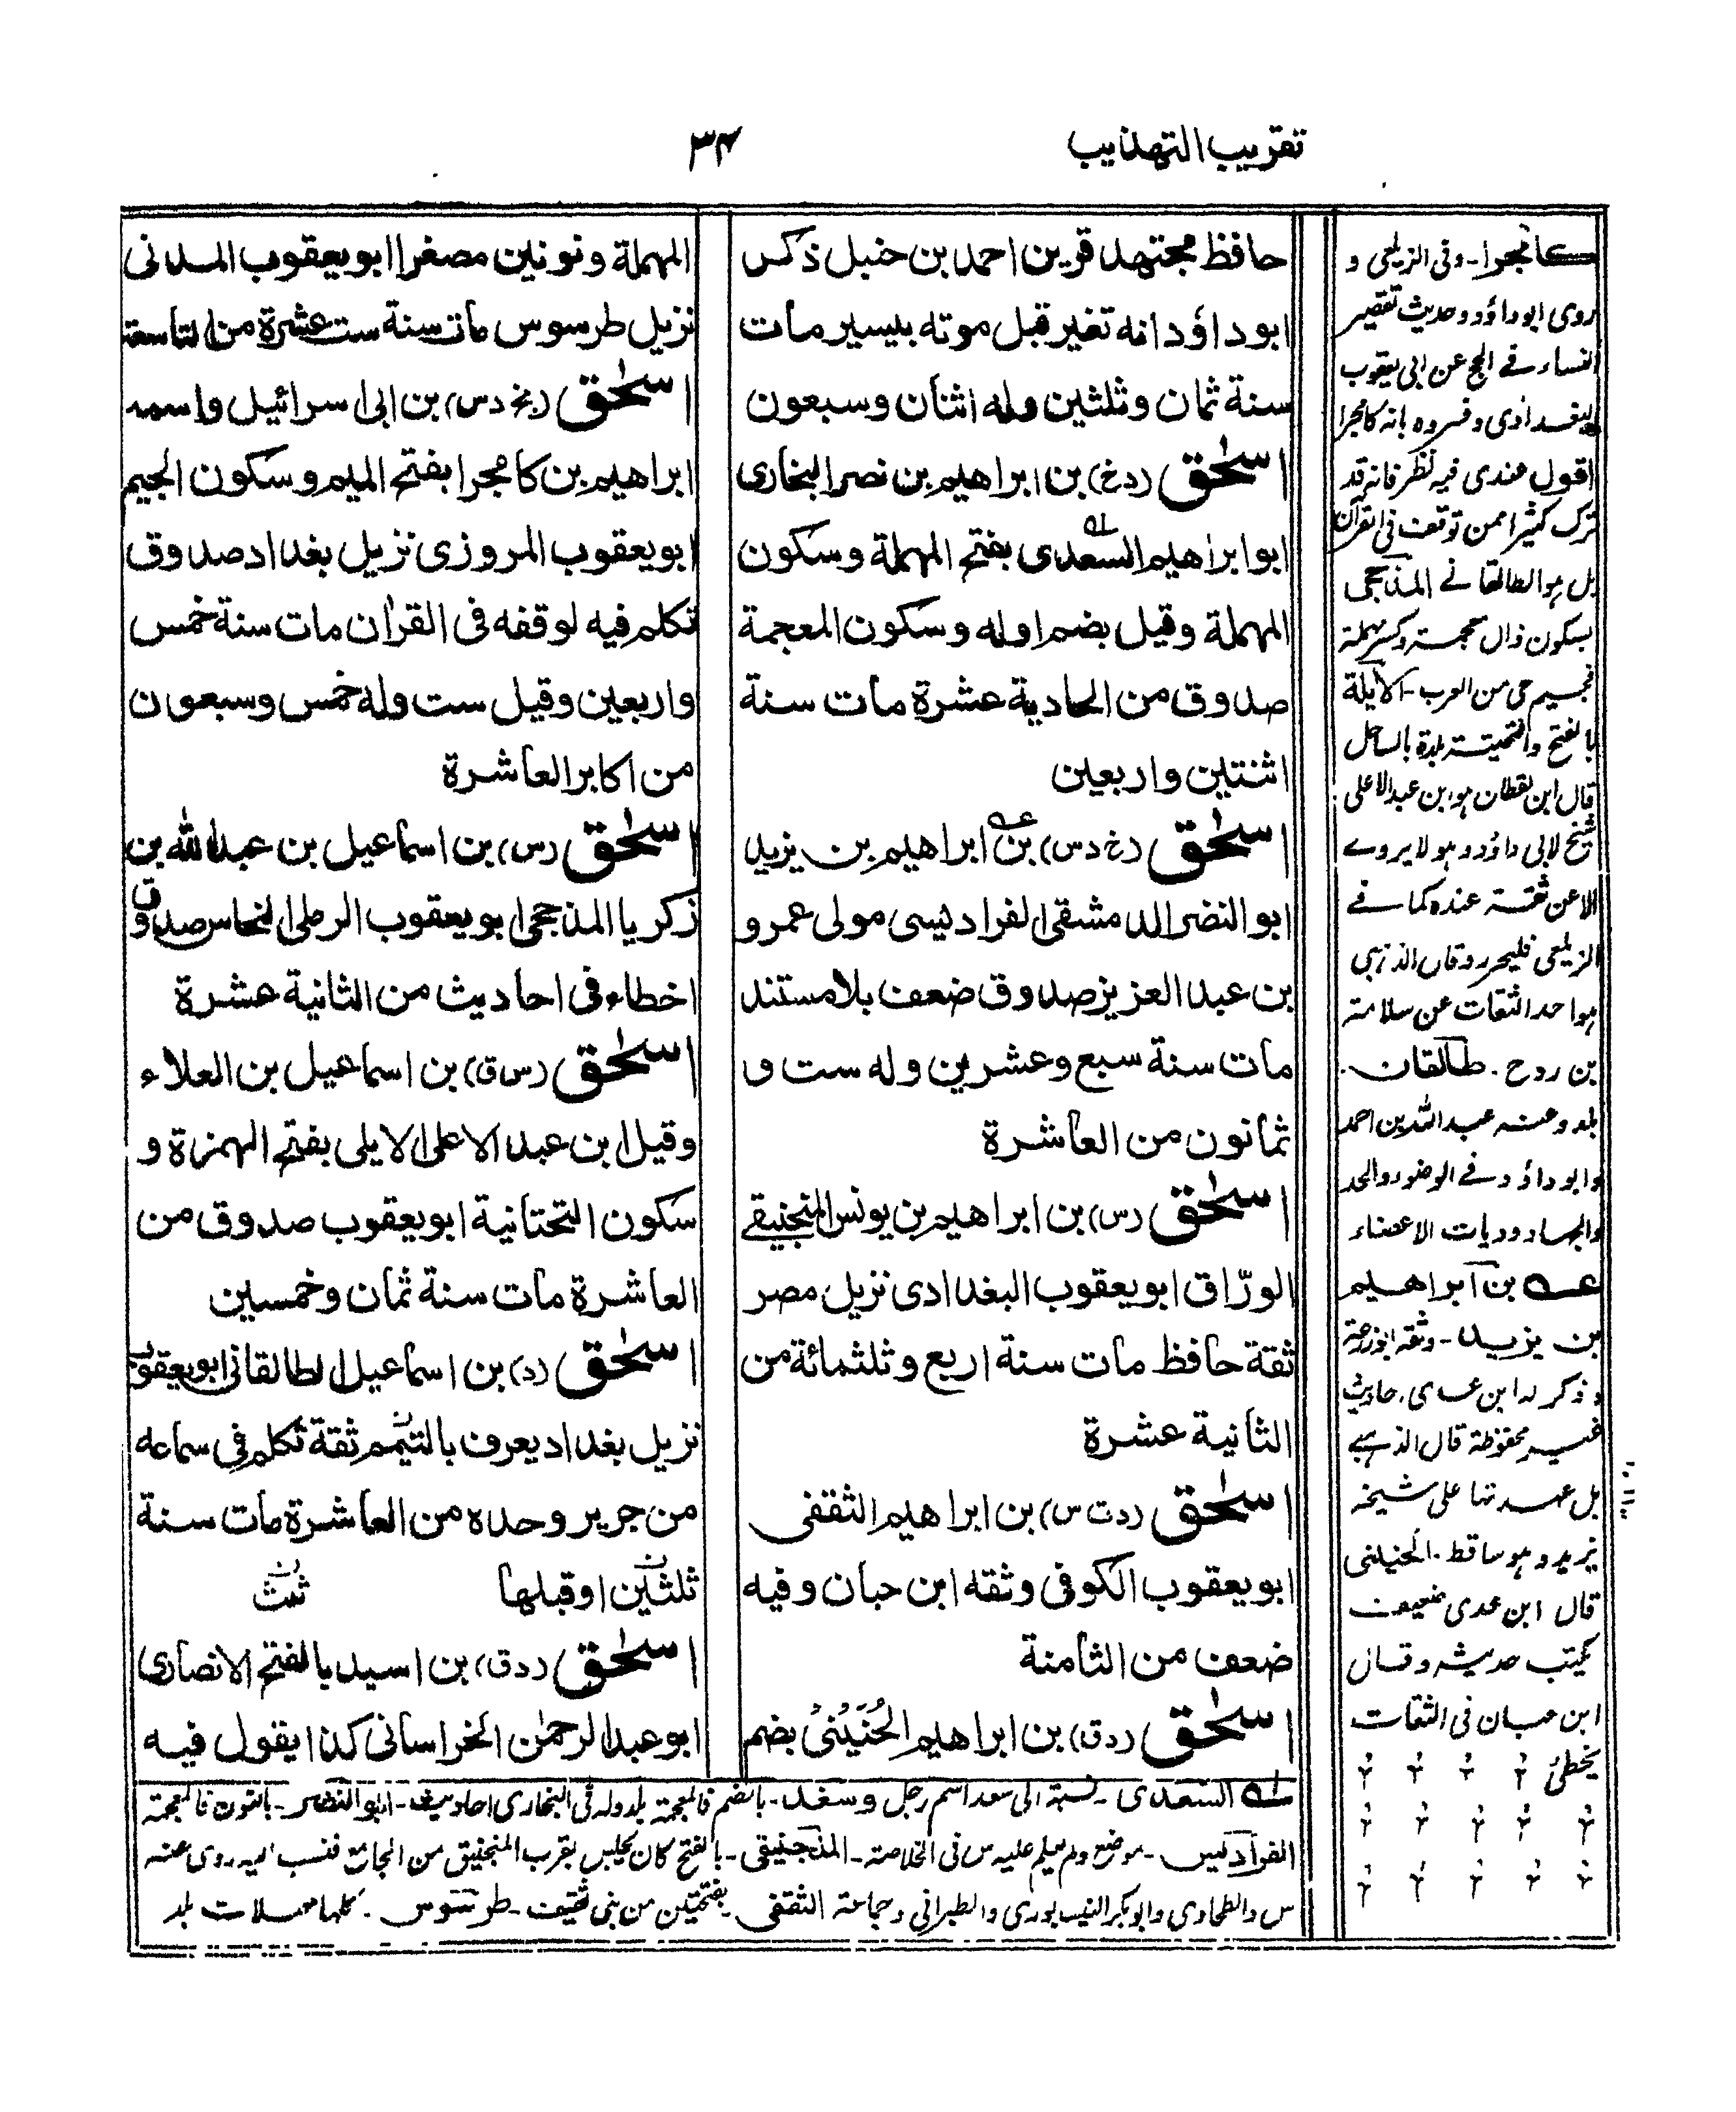 تقريب التهذيب
٣٤
حافظ مجتهد قرين احمد بن حنبل ذكر
ابو داؤد انه تغير قبل موته بيسير مات
سنة ثمان وثلثين وله اثنان وسبعون
اسحٰق (دخ) بن ابراهيم بن نصر البخاري
ابو ابراهيم السعدي بفتح المهملة وسكون
المهملة وقيل بضم اوله وسكون المعجمة
صدوق من الحادية عشرة مات سنة
اثنتين واربعين
اسحٰق (خ د س) بن ابراهيم بن يزيد
ابو النضر الدمشقي الفراديسى مولى عمرو
بن عبد العزيز صدوق ضعف بلا مستند
مات سنة سبع وعشرين وله ست و
ثمانون من العاشرة
اسحٰق (س) بن ابراهيم بن يونس المنجنيقے
الورّاق ابو يعقوب البغدادى نزيل مصر
ثقة حافظ مات سنة اربع وثلثمائة من
الثانية عشرة
اسحٰق (دت س) بن ابراهيم الثقفى
ابو يعقوب الكوفى وثقه ابن حبان وفيه
ضعف من الثامنة
اسحٰق (دق) بن ابراهيم الحُنَيْنىُ بضم
المهملة ونونين مصغرا ابو يعقوب المدنى
نزيل طرسوس مات سنة ست عشرة من التاسعة
اسحٰق (بخ دس) بن ابى اسرائيل واسمه
ابراهيم بن كامجرا بفتح الميم وسكون الجيم
ابو يعقوب المروزى نزيل بغداد صدوق
تكلم فيه لوقفه فى القراٰن مات سنة خمس
واربعين وقيل ست وله خمس وسبعون
من اكابر العاشرة
اسحٰق (س) بن اسماعيل بن عبد الله بن
زكريا المذحجى ابو يعقوب الرملى النحاس صدوق
اخطاء فى احاديث من الثانية عشرة
اسحٰق (س ق) بن اسماعيل بن العلاء
وقيل ابن عبد الاعلى الايلى بفتح الهمزة و
سكون التحتانية ابو يعقوب صدوق من
العاشرة مات سنة ثمان وخمسين
اسحٰق (د) بن اسماعيل الطالقانى ابو يعقوب
نزيل بغداد يعرف باليتيم ثقة تكلم فى سماعه
من جرير وحده من العاشرة مات سنة
ثلثين اوقبلها
اسحٰق (دق) بن اسيد بالفتح الانصارى
ابو عبد الرحمٰن الخراسانى كذا يقول فيه
كامجرا - وفى الزيلعى و
روى ابو داؤد وحديث تقصير
النساء فے الحج عن ابى يعقوب
البغدادى وفسروه بانه كامجرا
اقول عندى فيه نظر فانه قد
ترك كثيرا ممن توقف فى القرآن
بل هو الطالقانے المذحجى
بسكون ذال معجمة وكسر مهملة
فجيم حى من العرب - الايلة
بالفتح والتحتية بلدة بالساحل
قال ابن القطان هو ابن عبد الاعلى
شيخ لابى داؤد وهو لا يروے
الا عن ثقة عنده كما فے
الزيلعى فليحرر وقال الذهبى
هو احد الثقات عن سلامة
بن روح . طالقان .
بلد وعنه عبد الله بن احمد
وابو داؤد فے الوضوء والحد
والجهاد وديات الاعضاء
عـه بن ابراهيم
بن يزيد - وثقه ابو زرعة
وذكر له ابن عدى احاديث
غير محفوظة قال الذهبے
بل عهدتها على شيخه
يزيد وهو ساقط . الحنينى
قال ابن عدى ضعيف
يكتب حديثه وقال
ابن حبان فى الثقات
يخطئ
له السعدى - نسبة الى سعد اسم رجل وسغد - بالضم فالمعجمة بلد وله فى البخارى احاديث - ابو النضر - بالنون فالمعجمة
الفراديس - موضع ولم يعلم عليه س فى الخلاصة - المنجنيقى - بالفتح كان يجلس بقرب المنجنيق من الجامع فنسب اليه روى عنه
س والطحاوى وابو بكر النيسابورى والطبرانى وجماعة الثقفى - بفتحتين من بنى ثقيف - طرسوس - كلها مهملات بلد